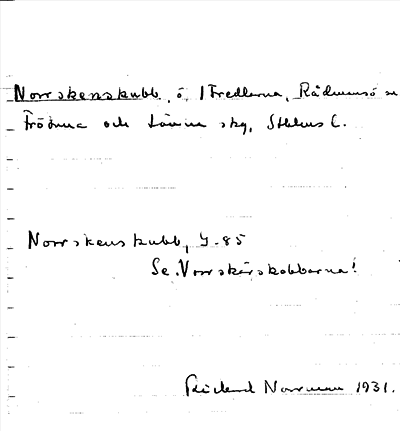 Norrskenskubb, ö, i Fredlarna, Rådmansö sn
Frötuna och Länna skg, Sthlms L.
Norrskenskubb, J. 85
Se. Norrskärskobbarna!
Rickard Norrman 1931.